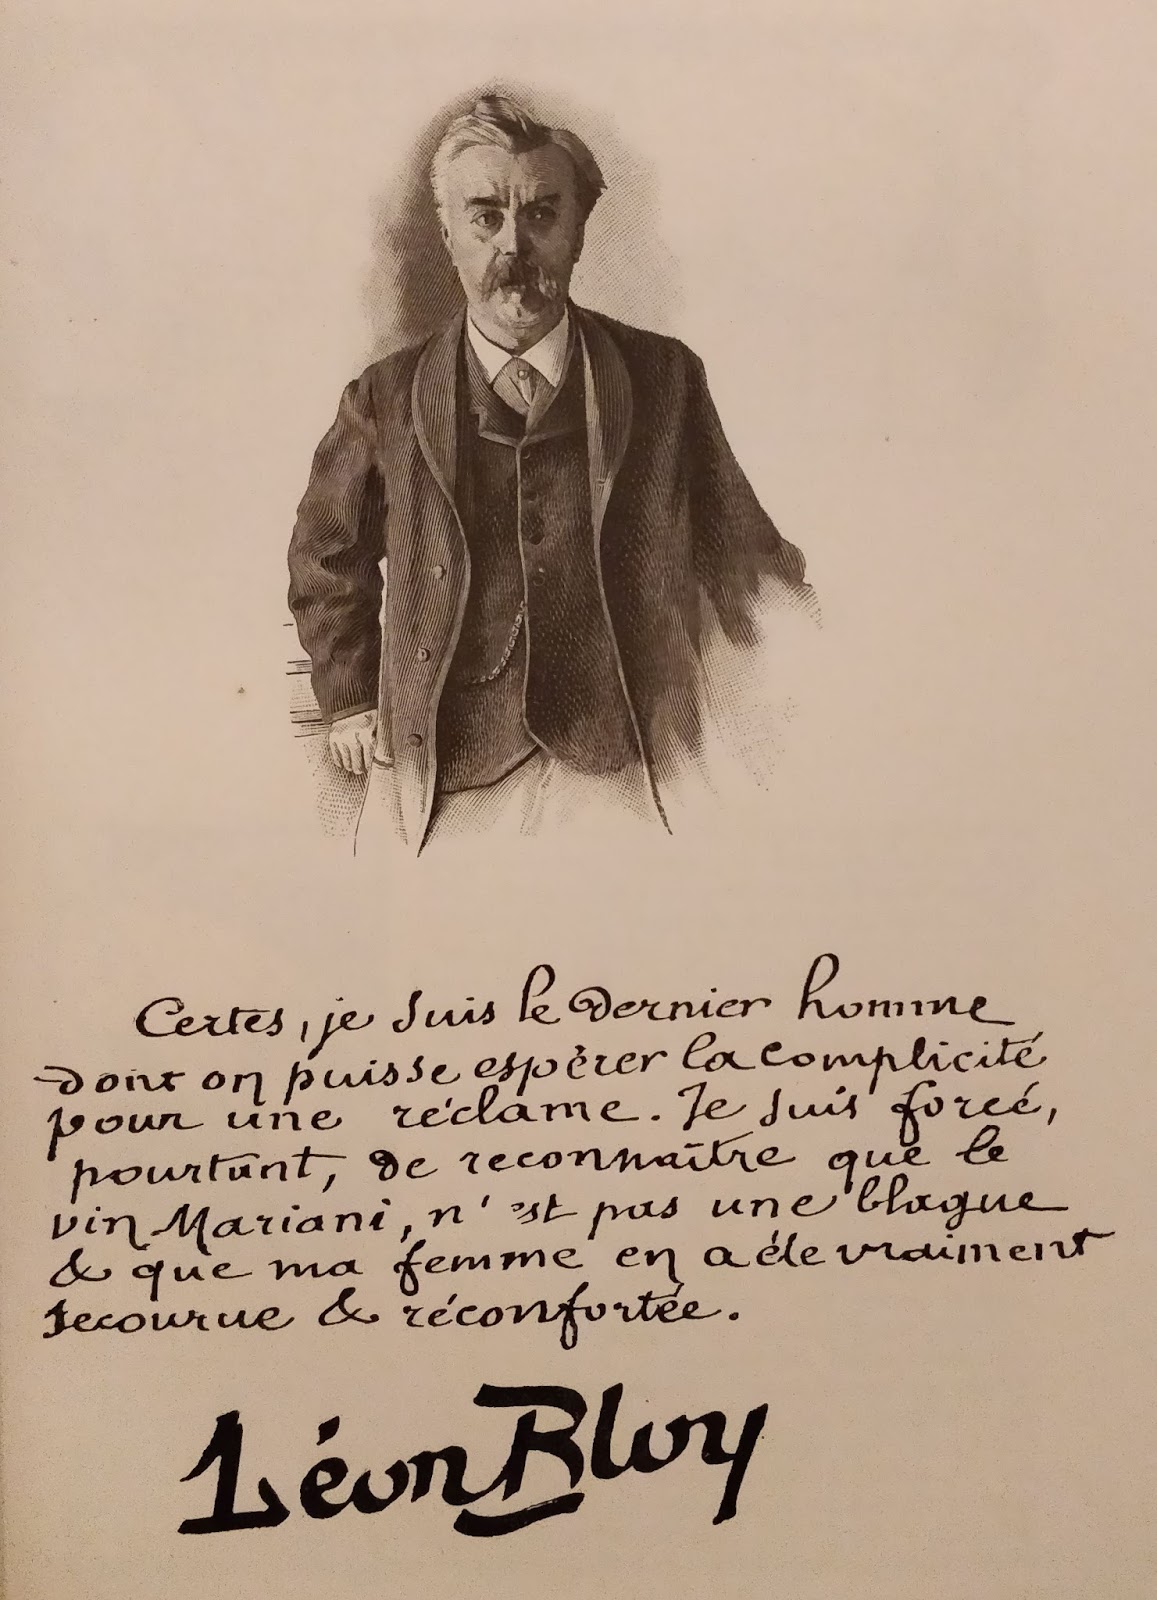 Certes, je suis le dernier homme
dont on puisse espérer la complicité
pour une réclame. Je suis forcé,
pourtant, de reconnaître que le
vin Mariani, n'est pas une blague
& que ma femme en a été vraiment
secourue & réconfortée.
Léon Bloy